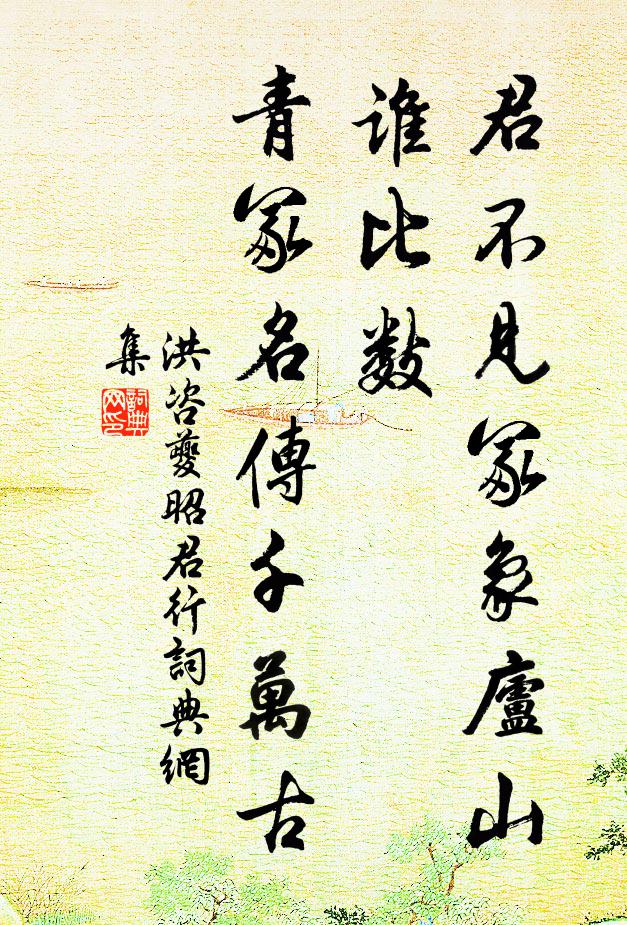 君不見冢象廬山
誰比數
青冢名傳千萬古
洪咨夔昭君行詞典網
集
詞典
网印